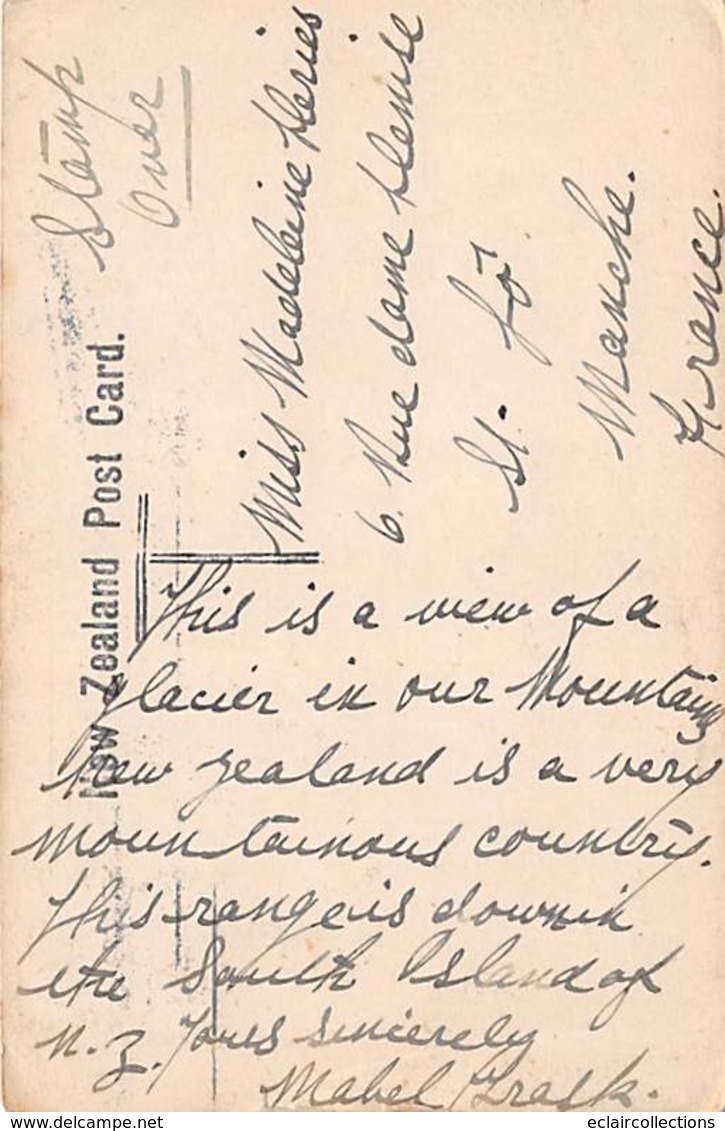 Stamp
Over
New Zealand Post Card.
Miss Madeleine
6. Rue dame
St. Lô
Manche.
France.
This is a view of a
glacier in our Mountains
New Zealand is a very
mountainous country.
This range is down in
the South Island of
N.Z. Yours Sincerely
Mabel Trask.
eclaircollections